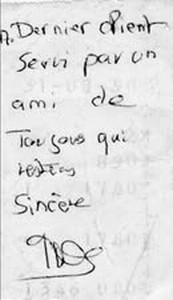 A. Dernier client
Servi par un
ami de
Toujours qui
restera
Sincère